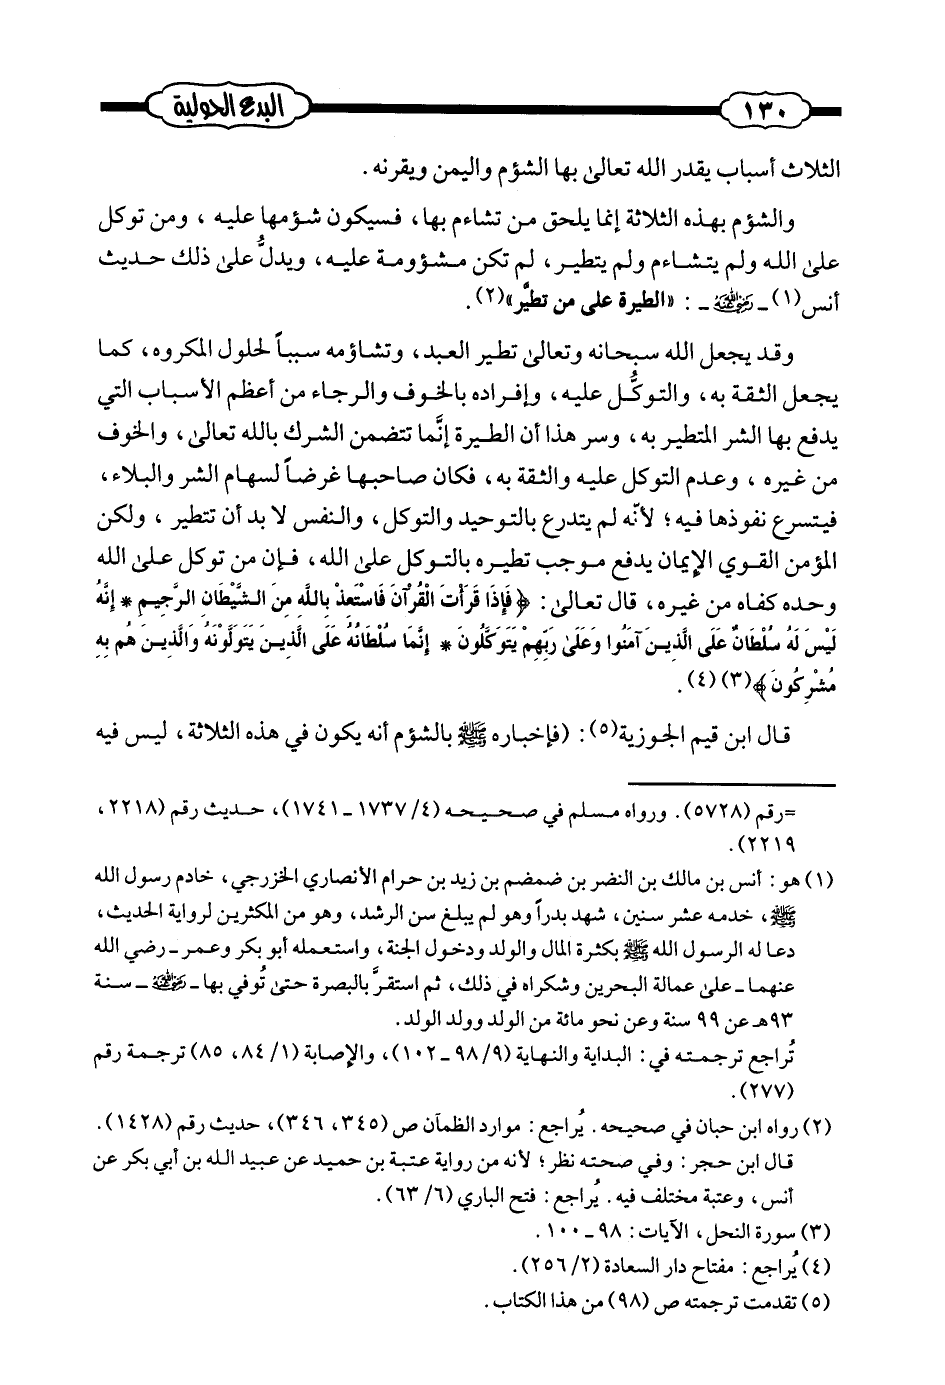 ١٣٠ البدع الحولية
الثلاث أسباب يقدر الله تعالىٰ بها الشؤم واليمن ويقرنه .
والشؤم بهذه الثلاثة إنما يلحق من تشاءم بها، فسيكون شؤمها عليه ، ومن توكل
علىٰ الله ولم يتشاءم ولم يتطير، لم تكن مشؤومة عليه، ويدلُّ علىٰ ذلك حديث
أنس(١) ـ رضي الله عنه ـ : «الطيرة على من تطيَّر»(٢).
وقد يجعل الله سبحانه وتعالىٰ تطير العبد، وتشاؤمه سبباً لحلول المكروه، كما
يجعل الثقة به، والتوكُّل عليه، وإفراده بالخوف والرجاء من أعظم الأسباب التي
يدفع بها الشر المتطير به، وسر هذا أن الطيرة إنَّما تتضمن الشرك بالله تعالىٰ، والخوف
من غيره ، وعدم التوكل عليه والثقة به، فكان صاحبها غرضاً لسهام الشر والبلاء،
فيتسرع نفوذها فيه؛ لأنّه لم يتدرع بالتوحيد والتوكل، والنفس لا بد أن تتطير ، ولكن
المؤمن القوي الإيمان يدفع موجب تطيره بالتوكل علىٰ الله، فإن من توكل علىٰ الله
وحده كفاه من غيره، قال تعالىٰ: ﴿ فَإِذَا قَرَأْتَ الْقُرْآنَ فَاسْتَعِذْ بِاللَّهِ مِنَ الشَّيْطَانِ الرَّجِيمِ * إِنَّهُ
لَيْسَ لَهُ سُلْطَانٌ عَلَى الَّذِينَ آمَنُوا وَعَلَىٰ رَبِّهِمْ يَتَوَكَّلُونَ * إِنَّمَا سُلْطَانُهُ عَلَى الَّذِينَ يَتَوَلَّوْنَهُ وَالَّذِينَ هُم بِهِ
مُشْرِكُونَ﴾(٣)(٤).
قال ابن قيم الجوزية(٥): (فإخباره ﷺ بالشؤم أنه يكون في هذه الثلاثة، ليس فيه
=رقم (٥٧٢٨). ورواه مسلم في صحيحه (٤/ ١٧٣٧ ـ ١٧٤١)، حديث رقم (٢٢١٨،
٢٢١٩).
(١) هو: أنس بن مالك بن النضر بن ضمضم بن زيد بن حرام الأنصاري الخزرجي، خادم رسول الله
ﷺ، خدمه عشر سنين، شهد بدراً وهو لم يبلغ سن الرشد، وهو من المكثرين لرواية الحديث،
دعا له الرسول الله ﷺ بكثرة المال والولد ودخول الجنة، واستعمله أبو بكر وعمر ـ رضي الله
عنهما ـ علىٰ عمالة البحرين وشكراه في ذلك، ثم استقرَّ بالبصرة حتىٰ تُوفي بها ـ رضي الله عنه ـ سنة
٩٣هـ عن ٩٩ سنة وعن نحو مائة من الولد وولد الولد.
تُراجع ترجمته في: البداية والنهاية (٩/ ٩٨ ـ ١٠٢)، والإصابة (١/ ٨٤، ٨٥) ترجمة رقم
(٢٧٧).
(٢) رواه ابن حبان في صحيحه. يُراجع: موارد الظمآن ص (٣٤٥، ٣٤٦)، حديث رقم (١٤٢٨).
قال ابن حجر: وفي صحته نظر؛ لأنه من رواية عتبة بن حميد عن عبيد الله بن أبي بكر عن
أنس، وعتبة مختلف فيه. يُراجع: فتح الباري (٦/ ٦٣).
(٣) سورة النحل، الآيات: ٩٨ ـ ١٠٠ .
(٤) يُراجع: مفتاح دار السعادة (٢/ ٢٥٦).
(٥) تقدمت ترجمته ص (٩٨) من هذا الكتاب.